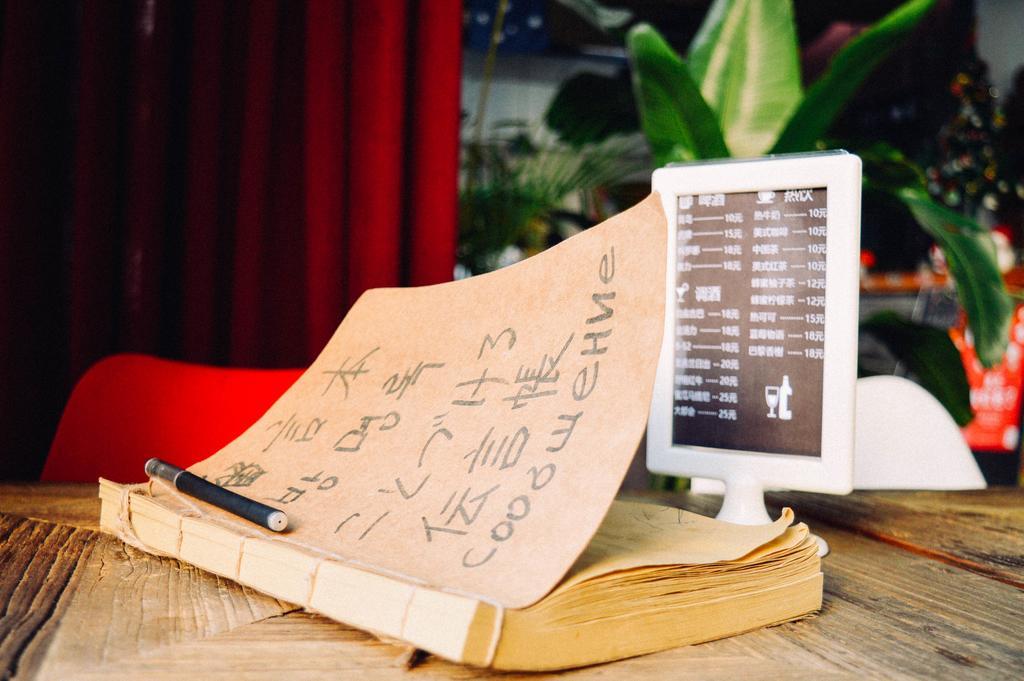 留言本
방명록
ことづける
伝言帳
сообщение
啤酒
热饮
10元
15元
18元
18元
热牛奶 10元
美式咖啡 10元
中国茶 10元
英式红茶 10元
蜂蜜柚子茶 12元
蜂蜜柠檬茶 12元
热可可 15元
蓝莓物语 18元
巴黎香榭 18元
调酒
18元
18元
18元
20元
20元
25元
大都会 25元